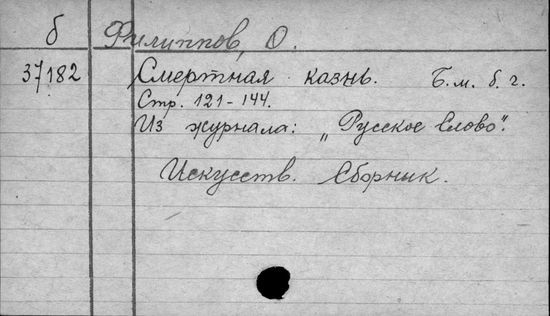 б Филиппов, О.
37182 Смертная казнь. Б.м. б.г.
Стр. 121-144.
Из журнала: „Русское Слово".
Искусств. Сборник.